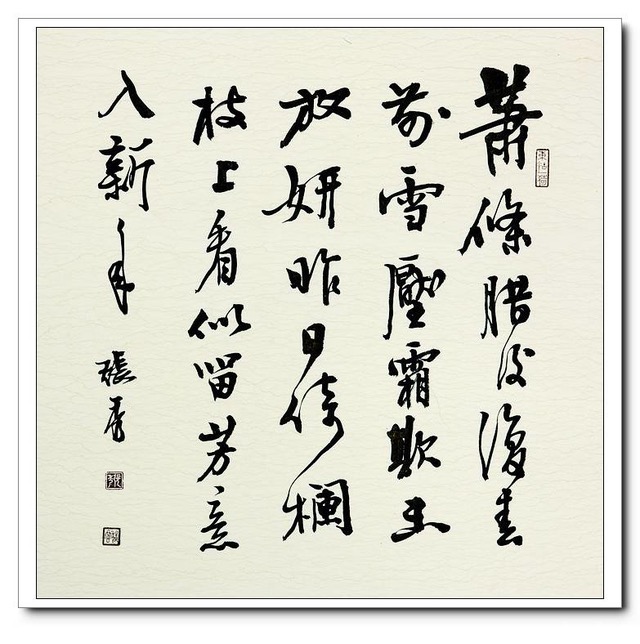 蕭條腊後復春
前雪壓霜欺未
放妍昨日倚欄
枝上看似留芳意
入新年
張秀